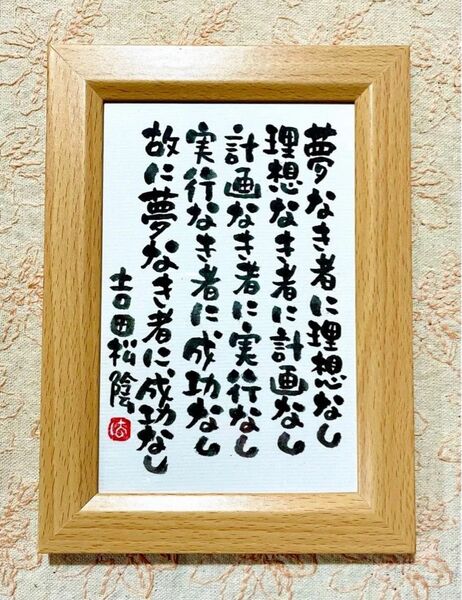 夢なき者に理想なし
理想なき者に計画なし
計画なき者に実行なし
実行なき者に成功なし
故に夢なき者に成功なし
吉田松陰